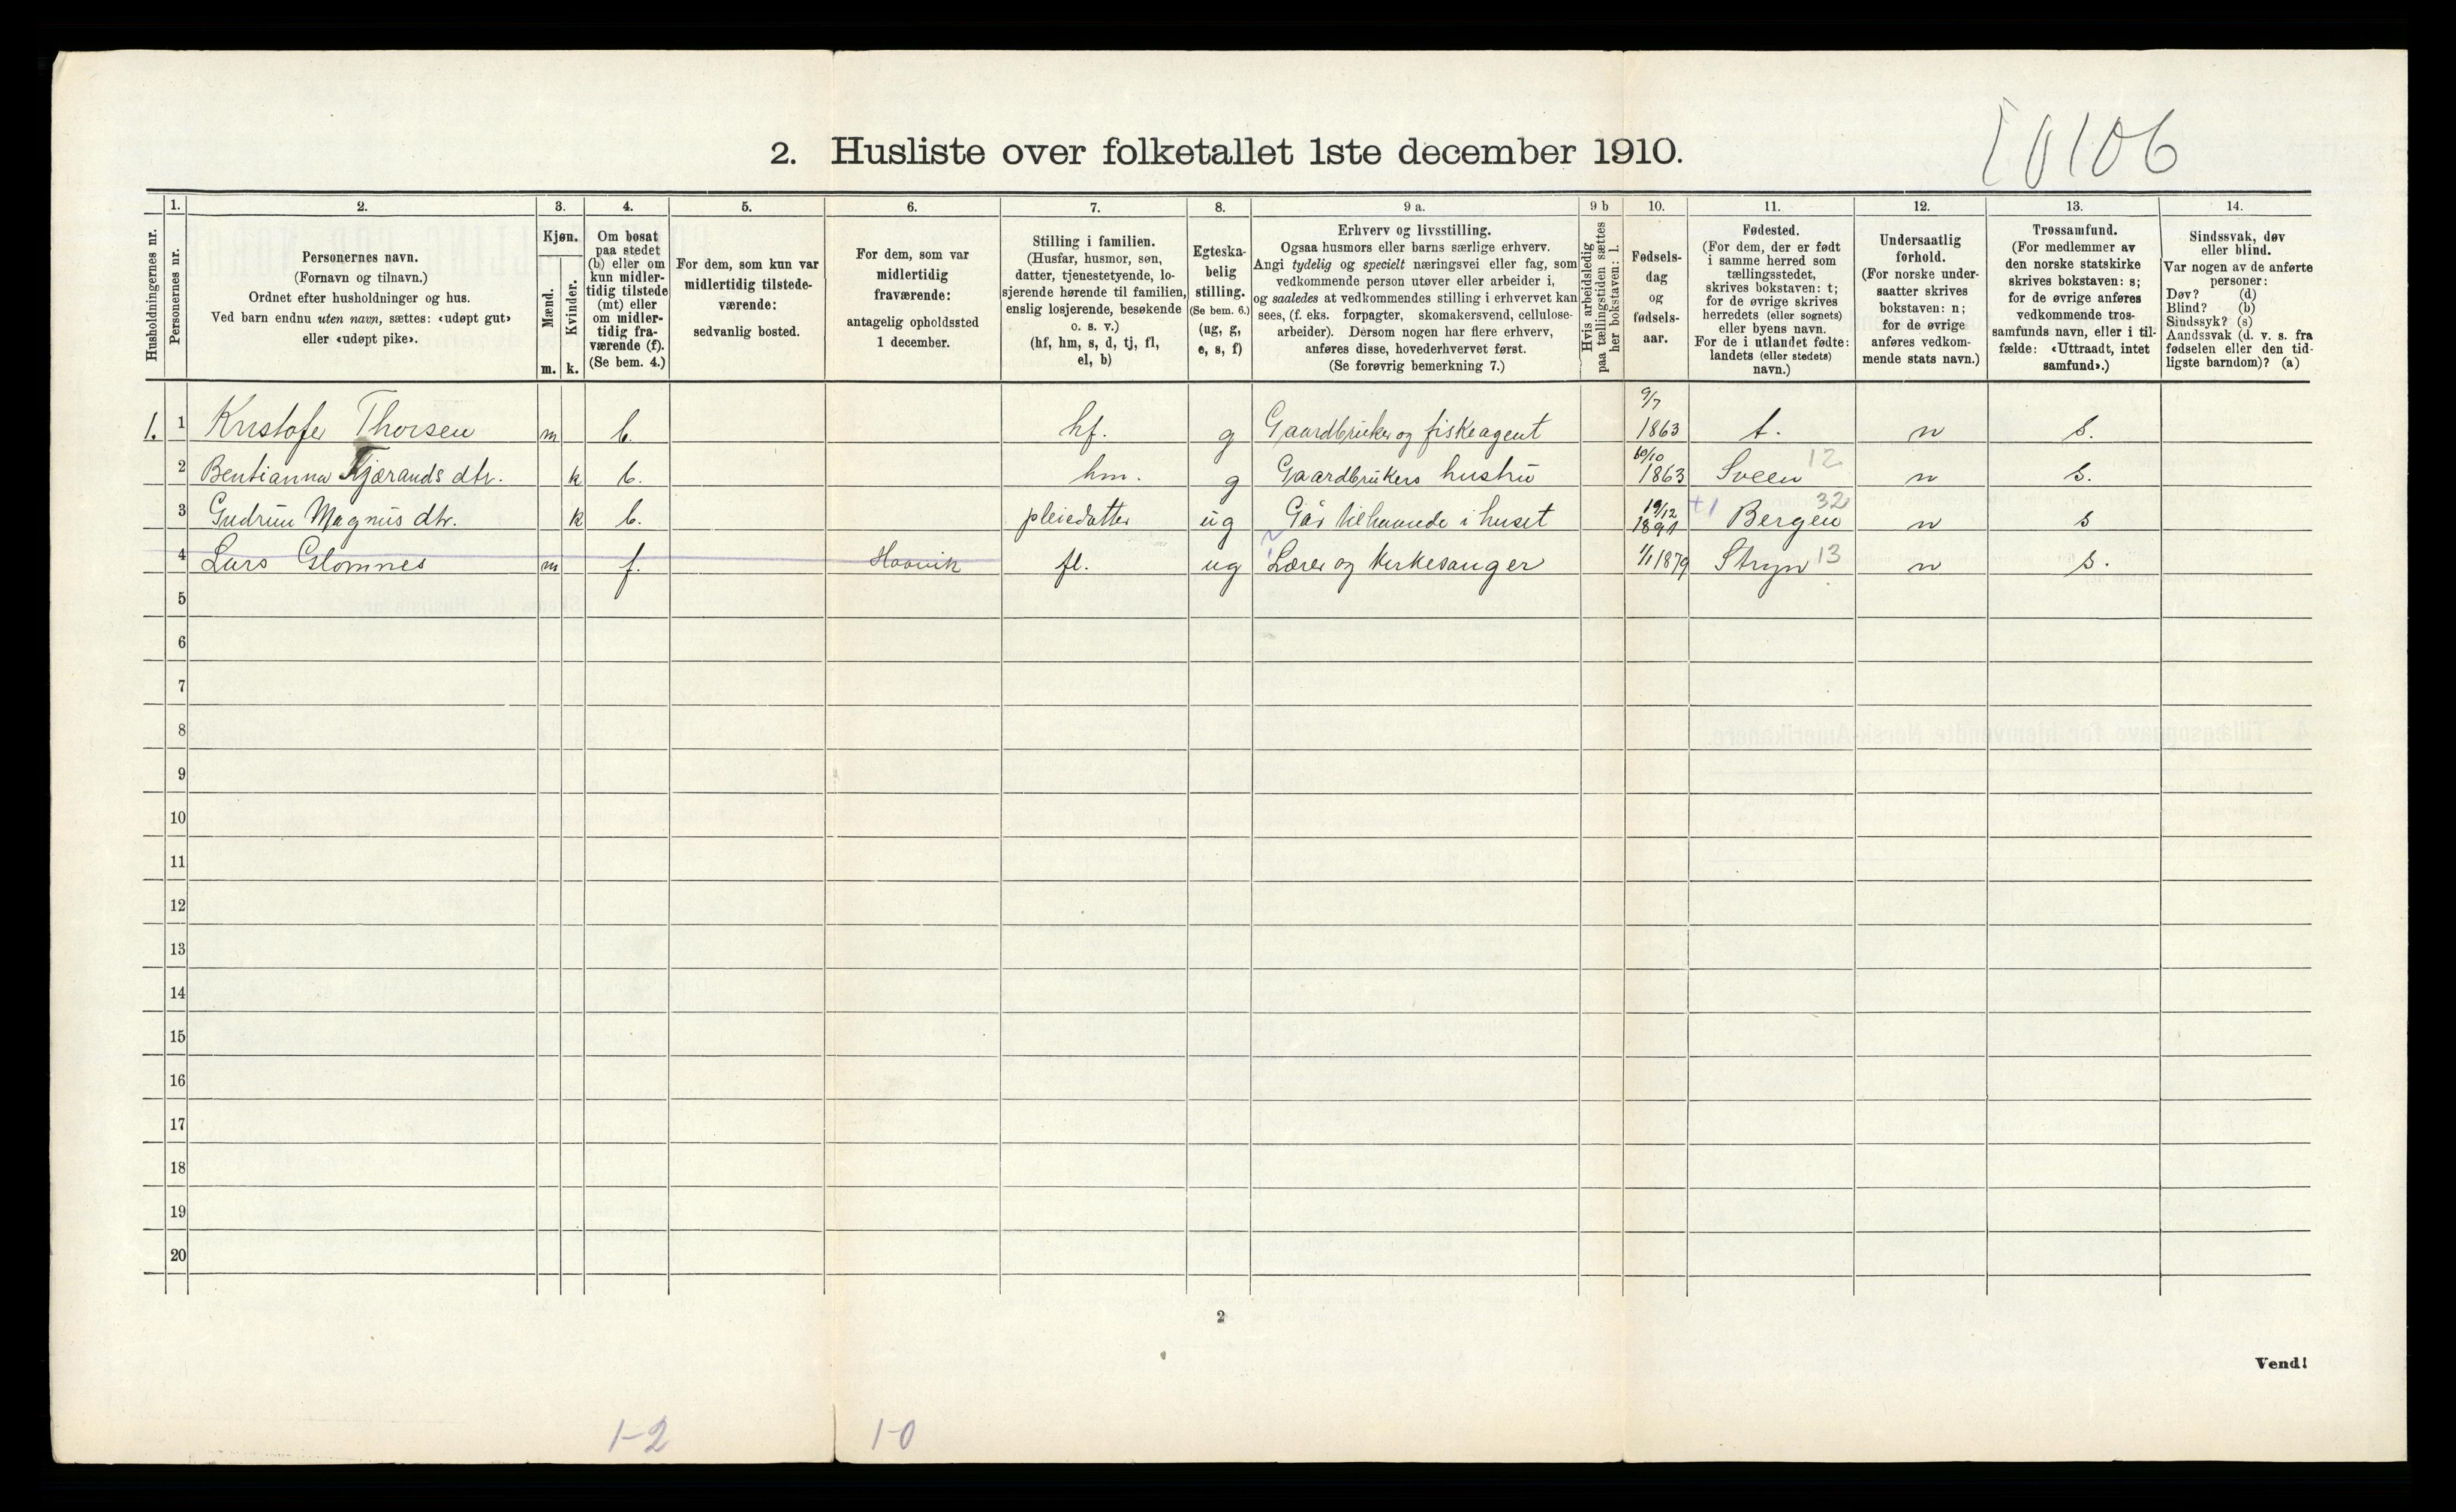 2. Husliste over folketallet 1ste december 1910.
10106
Husholdningernes nr.
1.
Personernes nr.
2.
Personernes navn.
(Fornavn og tilnavn.)
Ordnet efter husholdninger og hus.
Ved barn endnu uten navn, sættes: «udøpt gut»
eller «udøpt pike».
3.
Kjøn.
Mænd.
Kvinder.
m. k.
4.
Om bosat
paa stedet
(b) eller om
kun midler-
tidig tilstede
(mt) eller
om midler-
tidig fra-
værende (f).
(Se bem. 4.)
5.
For dem, som kun var
midlertidig tilstede-
værende:
sedvanlig bosted.
6.
For dem, som var
midlertidig
fraværende:
antagelig opholdssted
1 december.
7.
Stilling i familien.
(Husfar, husmor, søn,
datter, tjenestetyende, lo-
sjerende hørende til familien,
enslig losjerende, besøkende
o. s. v.)
(hf, hm, s, d, tj, fl,
el, b)
8.
Egteska-
belig
stilling.
(Se bem. 6.)
(ug, g,
e, s, f)
9 a.
Erhverv og livsstilling.
Ogsaa husmors eller barns særlige erhverv.
Angi tydelig og specielt næringsvei eller fag, som
vedkommende person utøver eller arbeider i,
og saaledes at vedkommendes stilling i erhvervet kan
sees, (f. eks. forpagter, skomakersvend, cellulose-
arbeider). Dersom nogen har flere erhverv,
anføres disse, hovederhvervet først.
(Se forøvrig bemerkning 7.)
9 b
Hvis arbeidsledig
paa tællingstiden sættes
her bokstaven: l.
10.
Fødsels-
dag
og
fødsels-
aar.
11.
Fødested.
(For dem, der er født
i samme herred som
tællingsstedet,
skrives bokstaven: t;
for de øvrige skrives
herredets (eller sognets)
eller byens navn.
For de i utlandet fødte:
landets (eller stedets)
navn.)
12.
Undersaatlig
forhold.
(For norske under-
saatter skrives
bokstaven: n;
for de øvrige
anføres vedkom-
mende stats navn.)
13.
Trossamfund.
(For medlemmer av
den norske statskirke
skrives bokstaven: s;
for de øvrige anføres
vedkommende tros-
samfunds navn, eller i til-
fælde: «Uttraadt, intet
samfund».)
14.
Sindssvak, døv
eller blind.
Var nogen av de anførte
personer:
Døv? (d)
Blind? (b)
Sindssyk? (s)
Aandssvak (d. v. s. fra
fødselen eller den tid-
ligste barndom)? (a)
1. 1 Kristofer Thorsen m b. hf. g Gaardbruker og fiskeagent 9/7 1863 t. n s.
2 Bentianna Kjærands dtr. k b. hm. g Gaardbrukers hustru 10/10 1863 Sveen 12 n s.
3 Gudrun Magnus dtr. k b. pleiedatter ug Går tilhaande i huset 19/12 1891 +1 Bergen 32 n s
4 Lars Glomnes m f. Haavik fl. ug Lærer og kirkesanger 1/1 1879 Stryn 13 n s.
5
6
7
8
9
10
11
12
13
14
15
16
17
18
19
20
2
Vend!
1-2 1-0